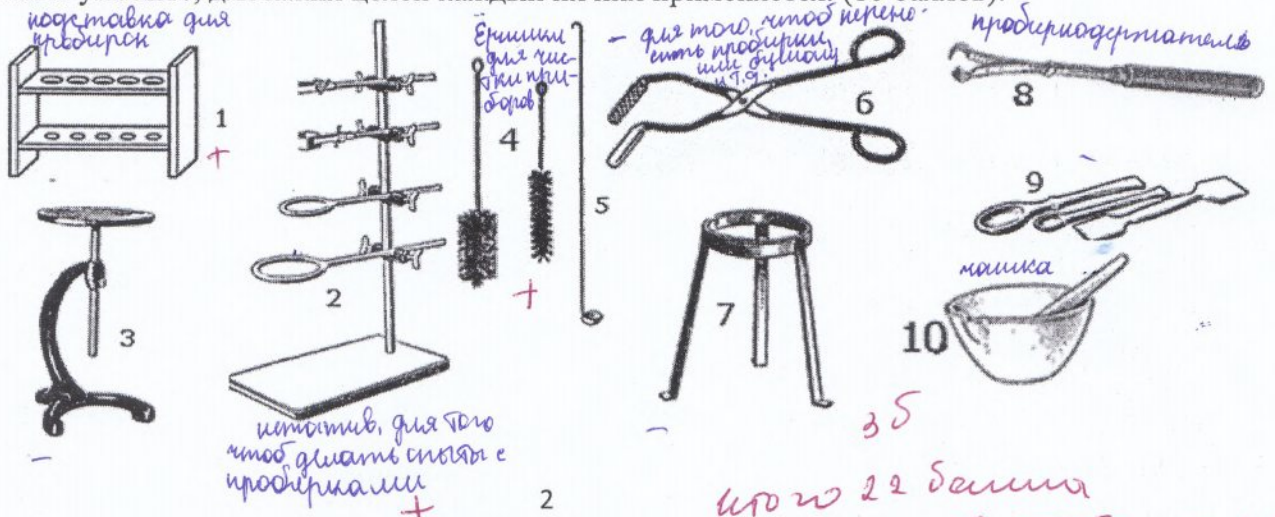 подставка для
пробирок
1
+
Ёршики
для чис-
тки при-
боров
4
+
5
- для того, чтоб перено-
сить пробирки,
или бумагу
и т.д.
6
пробиркодержатель
8
-
9
3
-
2
штатив, для того
чтоб делать опыты с
пробирками
+
7
-
чашка
10
3 б
2
итого 22 балла